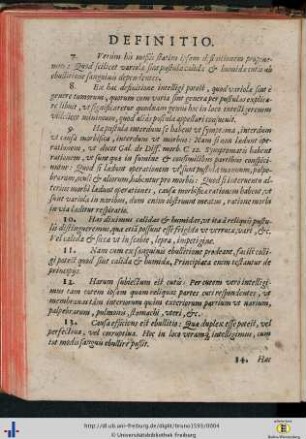 DEFINITIO.
7. Verùm his missis statim ipsam definitionem
morbi: Quòd scilicet variolæ sint pustulæ calidæ & humidæ cutis ab
ebullitione sanguinis dependentes.
8. Ex hac definitione intelligi potest, quòd variolæ sint è
genere tumorum, quorum cum varia sint genera per pustulas explica-
re libuit, ut significaretur quòd non de ijs in hoc loco intelligeremus
minimum, quod aliàs pustula appellari consueuit.
9. Hæ pustulæ interdum se habent ut symptoma, interdum
ut causa morbifica, interdum ut morbus: Nam si non lædunt ope-
rationem, ut docet Gal. de Diff. morb. C. 12. Symptomatis habent
rationem, ut sunt quæ in summo & consimilibus partibus conspici-
untur: Quòd si lædunt operationem ut sunt pustulæ manuum, palpe-
brarum, & aliorum, habentur pro morbis: Quòd si interuentu al-
terius morbi lædunt operationes, causæ morbificæ rationem habent, ut
sunt variolæ in naribus, dum enim obstruunt meatus, ratione morbi
in via læditur respiratio.
10. Has diximus calidas & humidas, ut ita à reliquis pustu-
lis distingueremus, quæ etiã possunt esse frigidæ ut verrucæ, vari, &c.
Vel calidæ & siccæ ut in scabie, lepra, impetigine.
11. Nam cum ex sanguinis ebullitione prodeant, facilè colli-
gi potest quòd sint calidæ & humidæ, Principiata enim testantur de
principijs.
12. Harum subiectum est cutis: Per cutem verò intelligi-
mus tam veram ipsam quàm reliquas partes cuti respondentes, ut
membranas tàm interiorum quàm exteriorum partium ut narium,
palpebrarum, pulmonis, stomachi, uteri, &c.
13. Causa efficiens est ebullitio: Quæ duplex esse potest, vel
perfectiua, vel corruptiua. Hoc in loco veramque intelligimus, cum
utroque modo sanguis ebullire possit.
14. Hæc
http://dl.ub.uni-freiburg.de/diglit/bruno1593/0004
© Universitätsbibliothek Freiburg